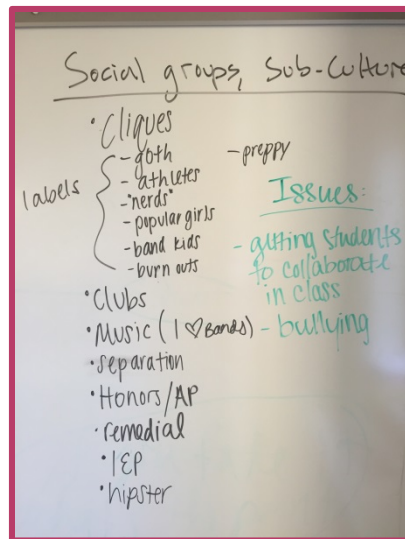 Social groups, Sub-Culture
• Cliques
labels
- goth
- athletes
- "nerds"
- popular girls
- band kids
- burn outs
- preppy
• Clubs
• Music (I ♡ Bands)
• separation
• Honors/AP
• remedial
• IEP
• hipster
Issues:
- getting students
to collaborate
in class
- bullying